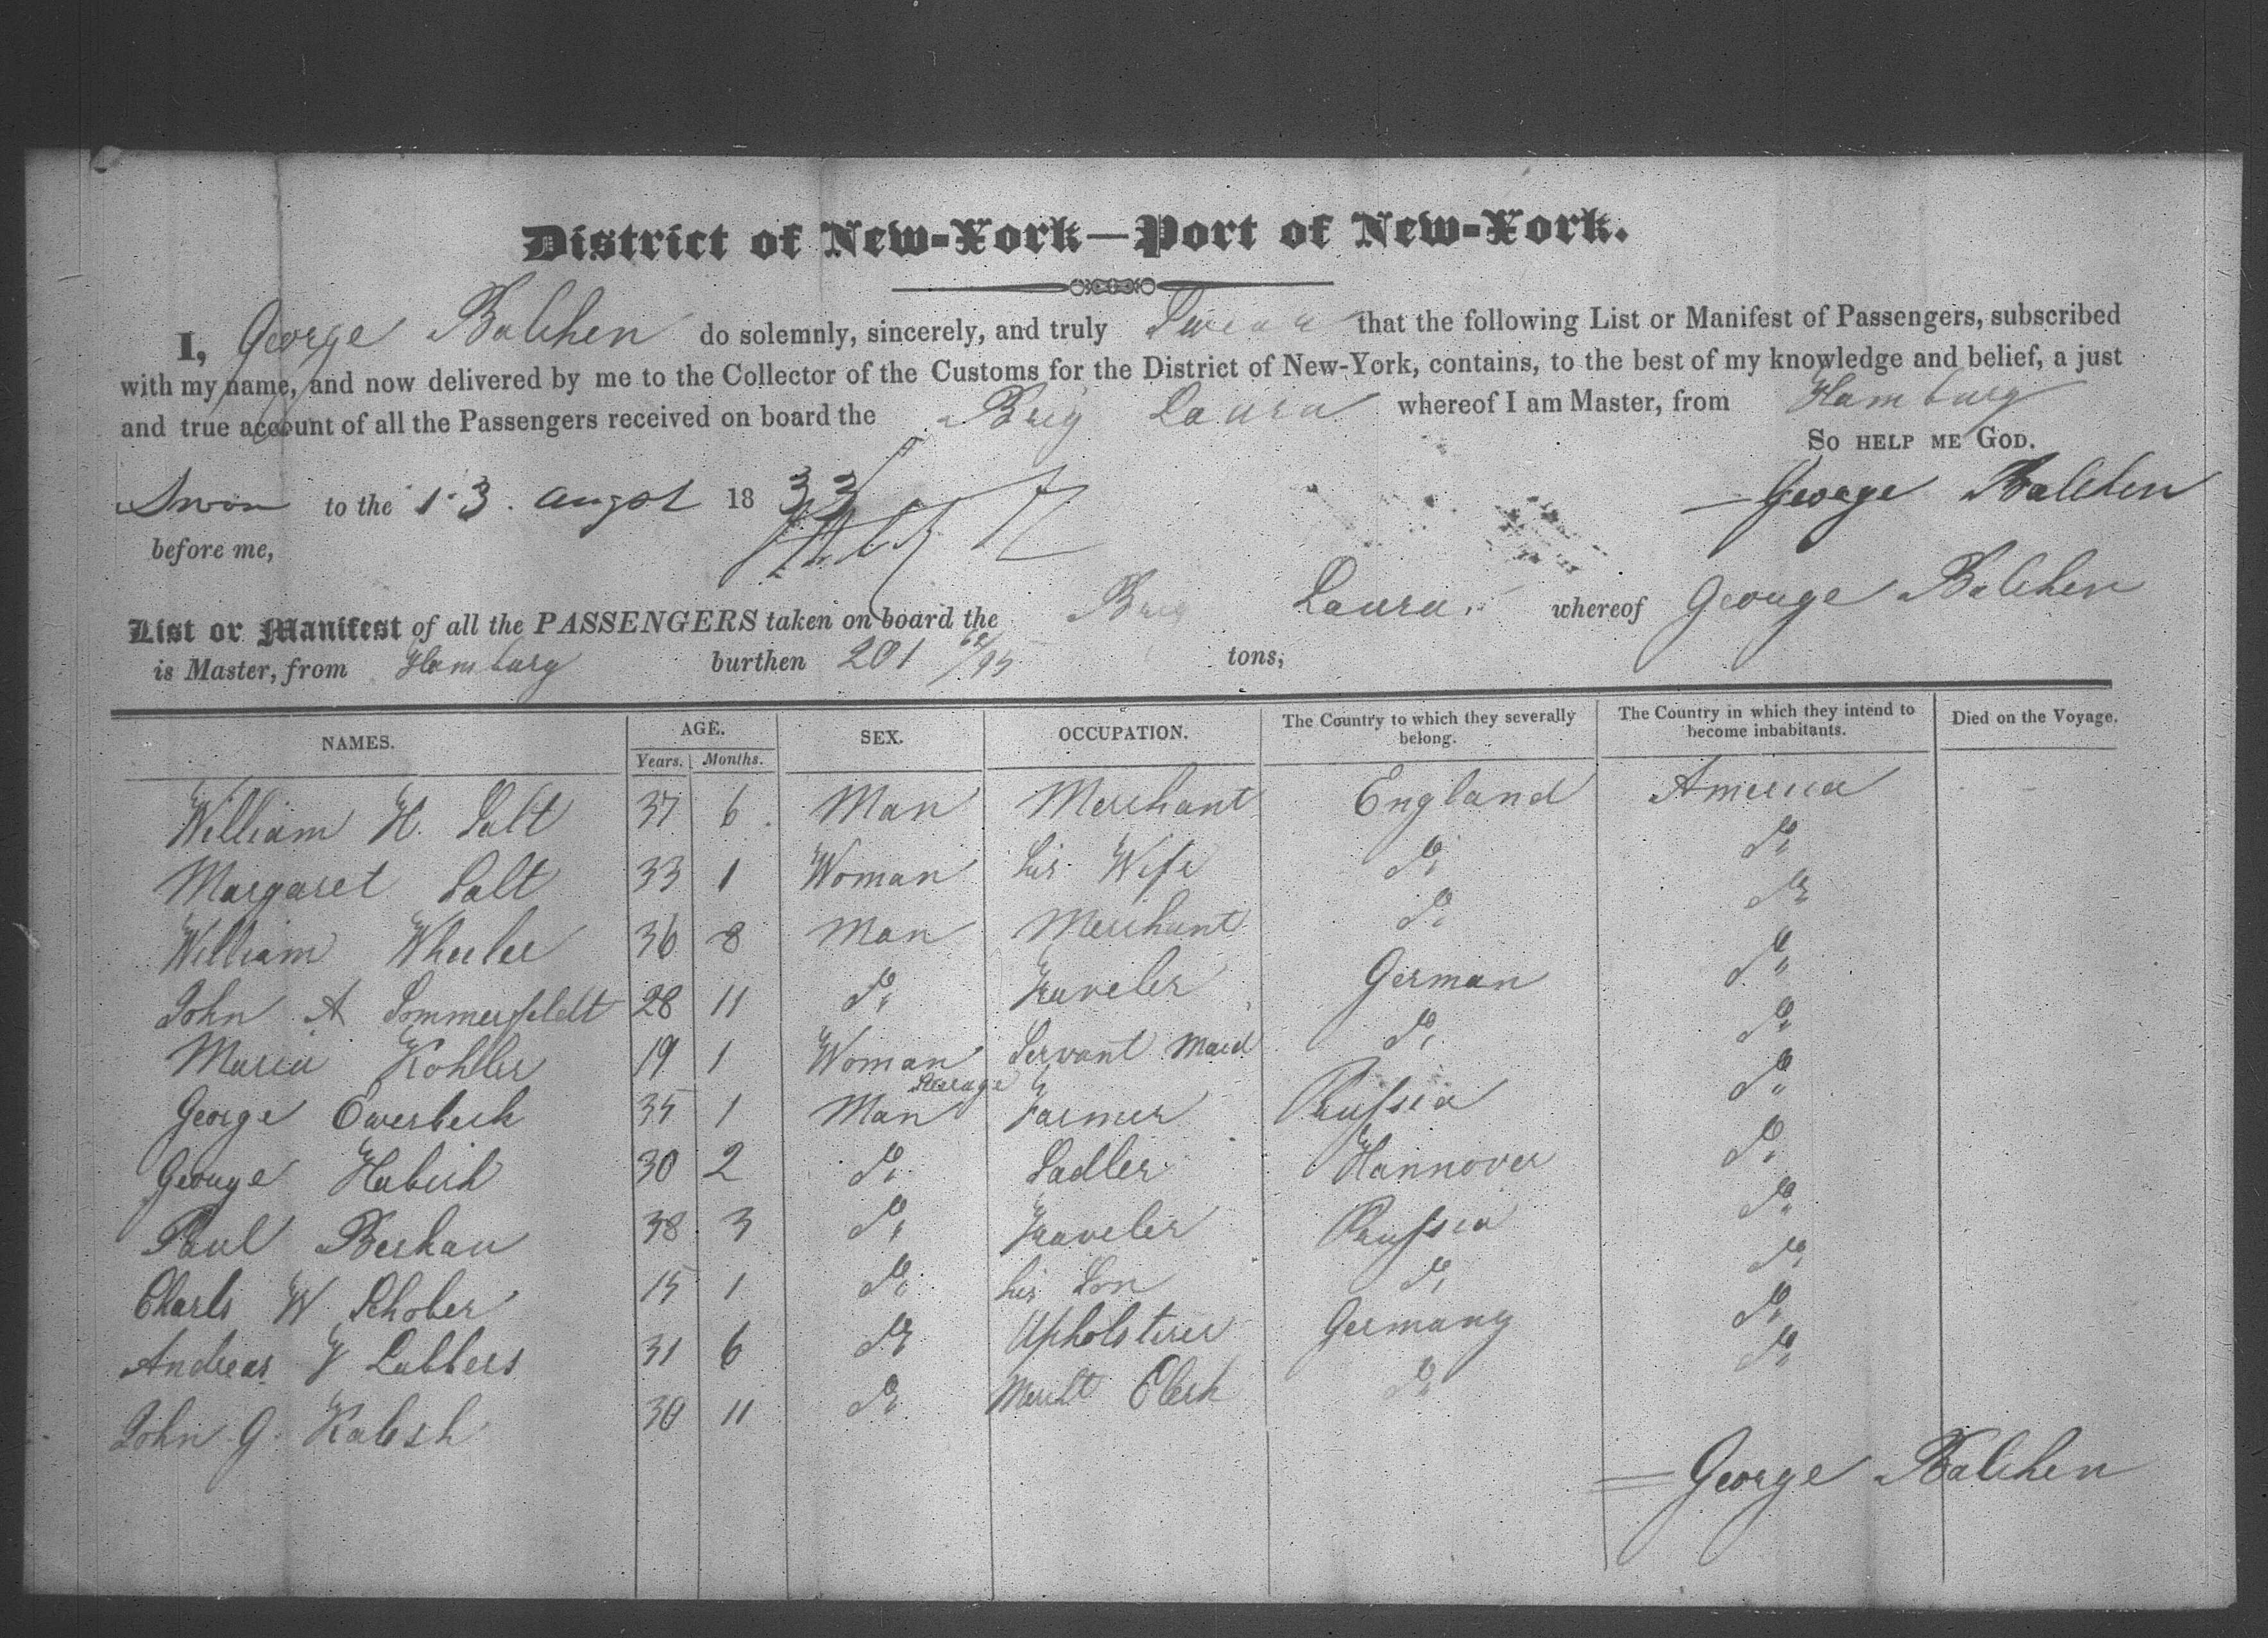 District of New-York—Port of New-York.
I, George Balchen do solemnly, sincerely, and truly Swear that the following List or Manifest of Passengers, subscribed
with my name, and now delivered by me to the Collector of the Customs for the District of New-York, contains, to the best of my knowledge and belief, a just
and true account of all the Passengers received on board the Brig Laura whereof I am Master, from Hamburg
So help me God.
Sworn to the 13. Augst 1833 George Balchen
before me,
List or Manifest of all the PASSENGERS taken on board the Brig Laura. whereof George Balchen
is Master, from Hamburg burthen 201 62/95 tons,
NAMES. AGE. Years. Months. SEX. OCCUPATION. The Country to which they severally belong. The Country in which they intend to become inhabitants. Died on the Voyage.
William H. Salt 37 6 Man Merchant England America
Margaret Salt 33 1 Woman his Wife do do
William Wheeler 36 8 Man Merchant do do
John A Sommerfeldt 28 11 do Traveler German do
Maria Kohller 19 1 Woman Servant Maid do do
Steerage
George Ewerbeck 35 1 Man Farmer Prussia do
George Habich 30 2 do Sadler Hannover do
Paul 38 3 do Traveler Prussia do
Charls W Schober 15 1 do his Son do do
Andreas Lubbers 31 6 do Upholsterer Germany do
John G. 30 11 do Mercht Clerk do do
George Balchen